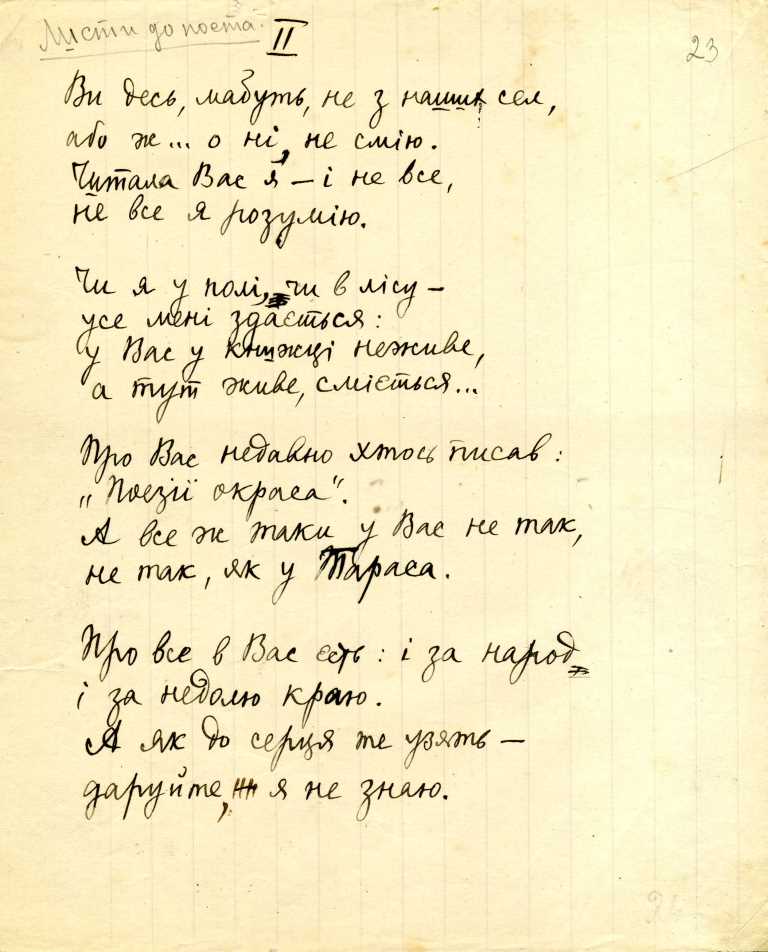 Листи до поета.
II
23
Ви десь, мабуть, не з наших сел,
або ж... о ні, не смію.
Читала Вас я – і не все,
не все я розумію.
Чи я у полі, чи в лісу –
усе мені здається:
у Вас у книжці неживе,
а тут живе, сміється...
Про Вас недавно хтось писав:
„Поезії окраса".
А все ж таки у Вас не так,
не так, як у Тараса.
Про все в Вас єсть: і за народ
і за недолю краю.
А як до серця те узять –
даруйте, я не знаю.